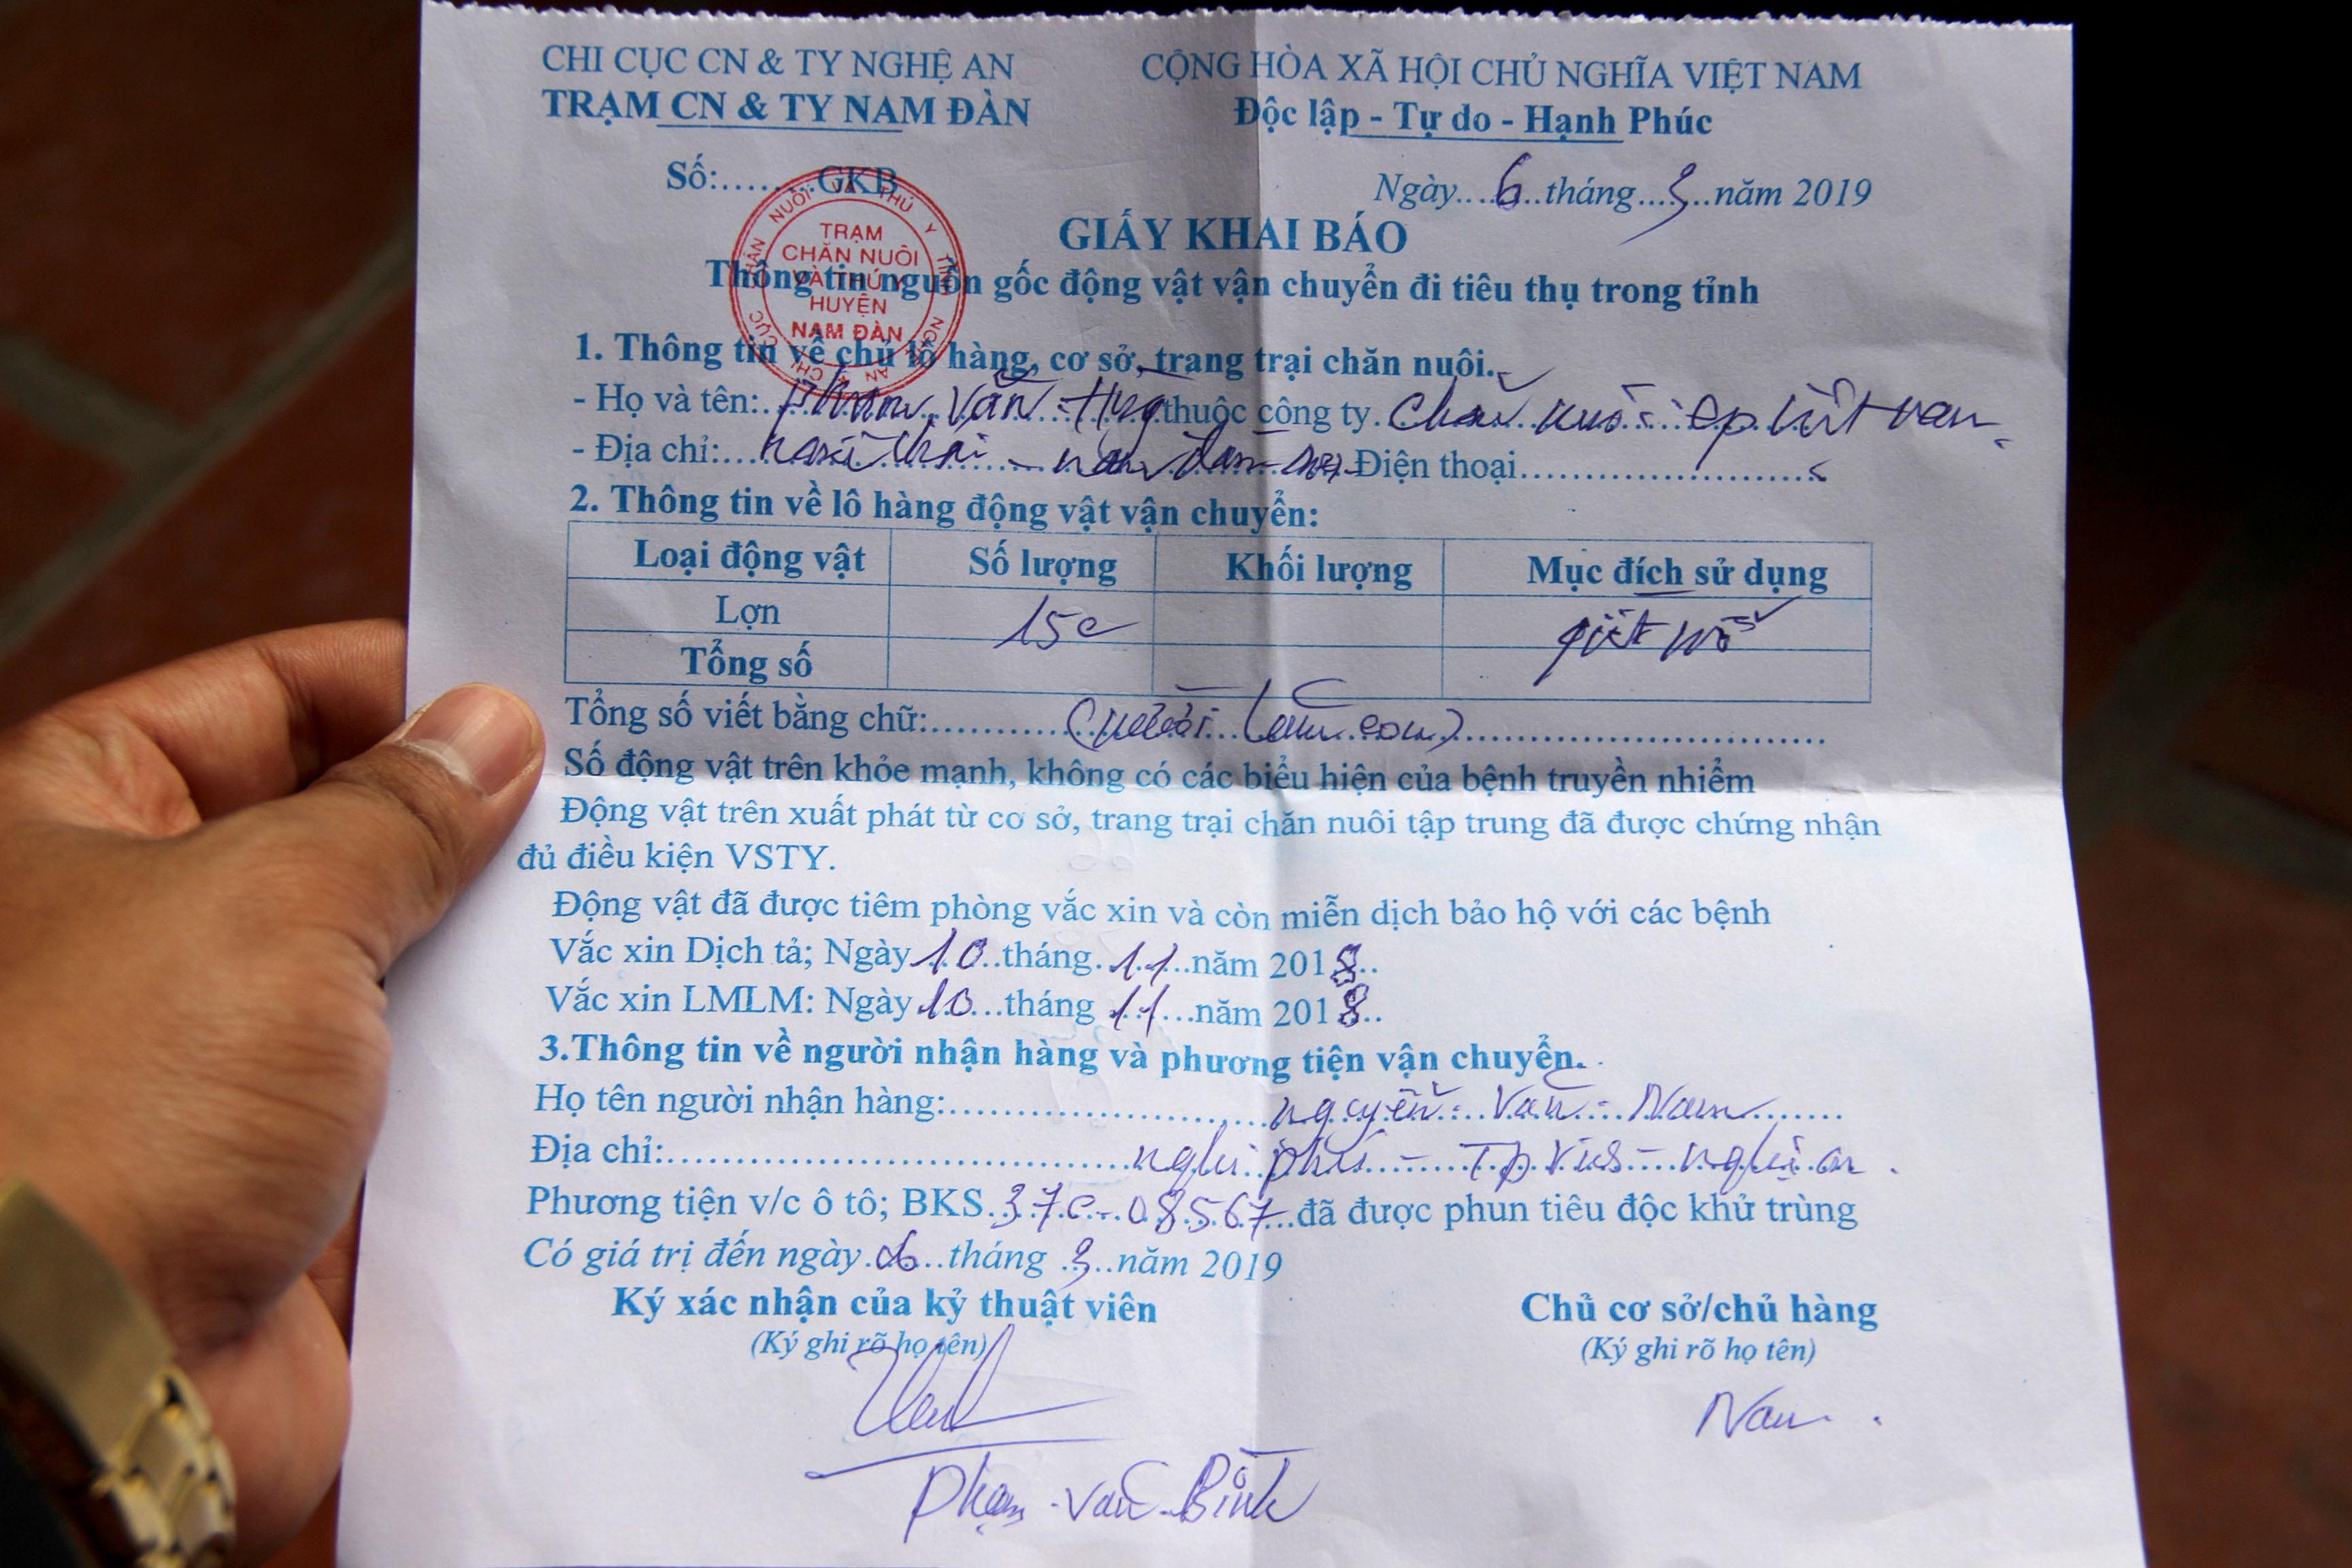 CHI CỤC CN & TY NGHỆ AN
TRẠM CN & TY NAM ĐÀN
CỘNG HÒA XÃ HỘI CHỦ NGHĨA VIỆT NAM
Độc lập - Tự do - Hạnh Phúc
Số:........GKB
Ngày....6..tháng....3..năm 2019
CHI CỤC CHĂN NUÔI VÀ THÚ Y TỈNH NGHỆ AN
TRẠM
CHĂN NUÔI
VÀ THÚ Y
HUYỆN
NAM ĐÀN
GIẤY KHAI BÁO
Thông tin nguồn gốc động vật vận chuyển đi tiêu thụ trong tỉnh
1. Thông tin về chủ lô hàng, cơ sở, trang trại chăn nuôi.
- Họ và tên: Phạm Văn thuộc công ty Chăn nuôi
- Địa chỉ: - Nam Đàn - Điện thoại
2. Thông tin về lô hàng động vật vận chuyển:
Loại động vật Số lượng Khối lượng Mục đích sử dụng
Lợn 15c giết mổ
Tổng số
Tổng số viết bằng chữ: (mười lăm con)
Số động vật trên khỏe mạnh, không có các biểu hiện của bệnh truyền nhiễm
Động vật trên xuất phát từ cơ sở, trang trại chăn nuôi tập trung đã được chứng nhận
đủ điều kiện VSTY.
Động vật đã được tiêm phòng vắc xin và còn miễn dịch bảo hộ với các bệnh
Vắc xin Dịch tả; Ngày 10 tháng 11 năm 2018
Vắc xin LMLM: Ngày 10 tháng 11 năm 2018
3.Thông tin về người nhận hàng và phương tiện vận chuyển.
Họ tên người nhận hàng: nguyễn - Văn - Nam
Địa chỉ: nghi phú - Tp Vinh - nghệ an
Phương tiện v/c ô tô; BKS 37C-08567 đã được phun tiêu độc khử trùng
Có giá trị đến ngày 06 tháng 3 năm 2019
Ký xác nhận của kỹ thuật viên
(Ký ghi rõ họ tên)
Chủ cơ sở/chủ hàng
(Ký ghi rõ họ tên)
Nam
Phạm Văn Bình